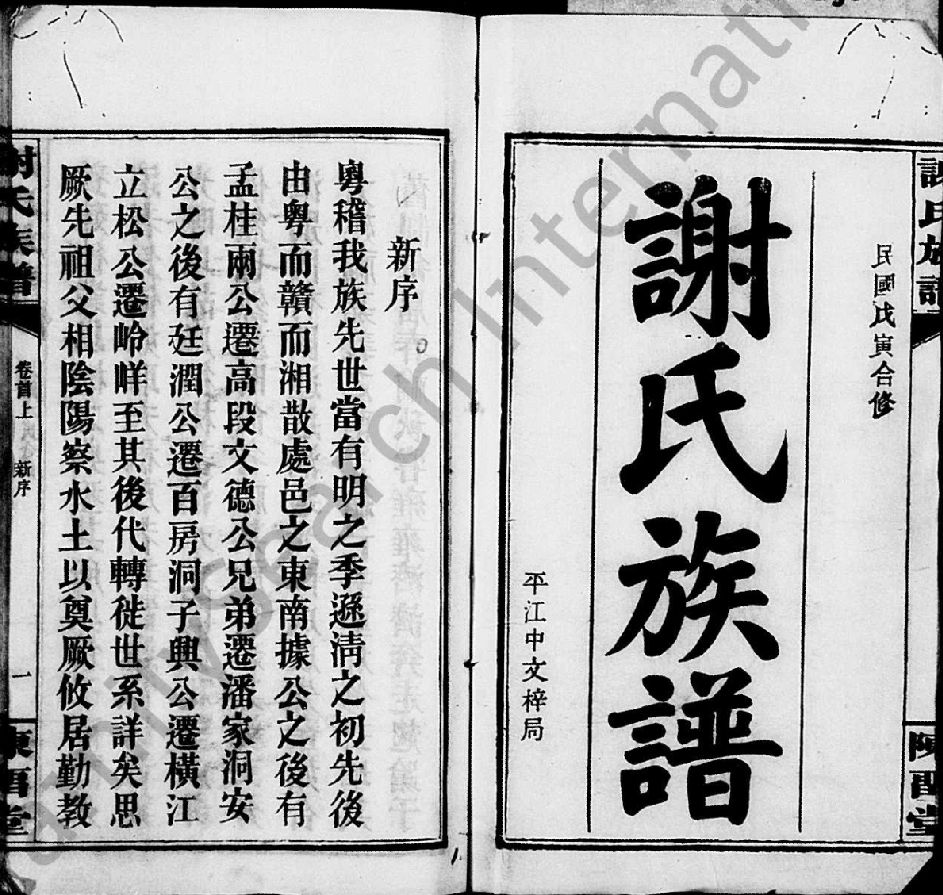 謝氏族譜
民國戊寅合修
謝氏族譜
平江中文梓局
新序
粵稽我族先世當有明之季遜清之初先後
由粵而贛而湘散處邑之東南據公之後有
孟桂兩公遷高段文德公兄弟遷潘家洞安
公之後有廷潤公遷百房洞子興公遷橫江
立松公遷岭咩至其後代轉徙世系詳矣思
厥先祖父相陰陽察水土以奠厥攸居勤教
謝氏族譜
卷首上
新序
一
FamilySearch International